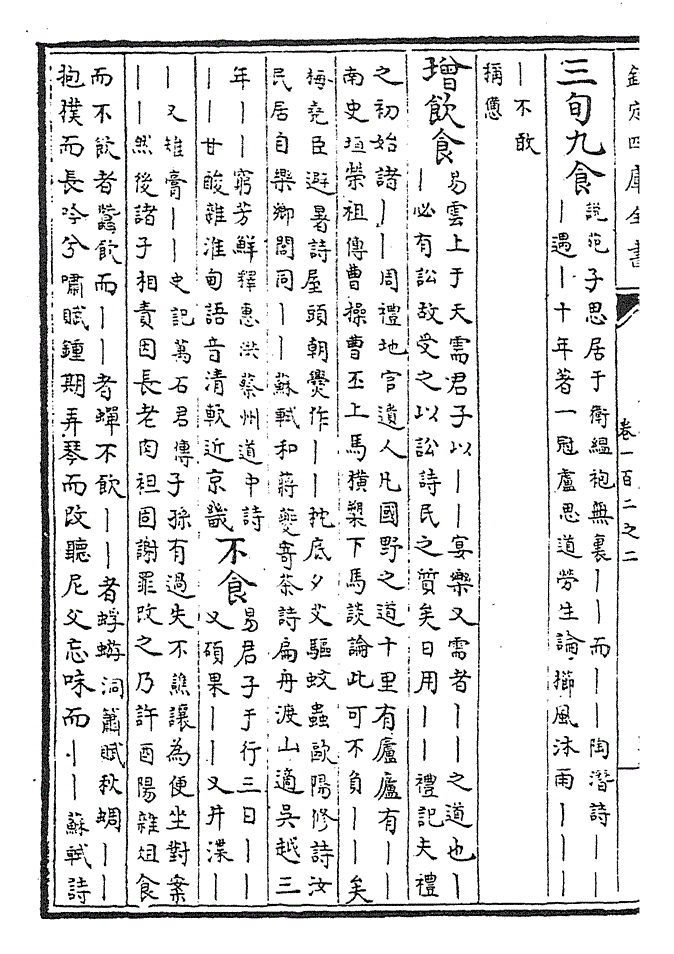 欽定四庫全書 卷一百二之二
三旬九食 說苑子思居于衛緼袍無裏｜｜而｜｜陶潛詩｜｜
｜遇｜十年著一冠盧思道勞生論櫛風沐雨｜｜｜｜
｜不敢
稱憊
增飲食 易雲上于天需君子以｜｜宴樂又需者｜｜之道也｜
｜必有訟故受之以訟詩民之質矣日用｜｜禮記夫禮
之初始諸｜｜周禮地官遺人凡國野之道十里有廬廬有｜｜
南史垣榮祖傳曹操曹丕上馬橫槊下馬談論此可不負｜｜矣
梅堯臣避暑詩屋頭朝爨作｜｜枕底夕艾驅蚊蟲歐陽修詩汝
民居自樂鄉閭同｜｜蘇軾和蔣夔寄茶詩扁舟渡山適吳越三
年｜｜窮芳鮮釋惠洪蔡州道中詩
｜｜甘酸雜淮甸語音清軟近京畿
不食 易君子于行三日｜｜
又碩果｜｜又井渫｜｜
｜又雉膏｜｜史記萬石君傳子孫有過失不譙讓為便坐對案
｜｜然後諸子相責因長老肉袒固謝罪改之乃許酉陽雜俎食
而不飲者蠶飲而｜｜者蟬不飲｜｜者蜉蝣洞簫賦秋蜩｜｜
抱樸而長吟兮嘯賦鍾期弄琴而改聽尼父忘味而｜｜蘇軾詩